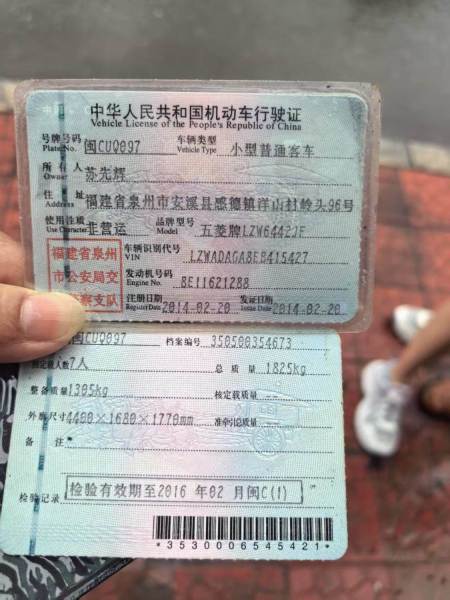 中华人民共和国机动车行驶证
Vehicle License of the People's Republic of China
号牌号码 闽CUQ097 车辆类型 小型普通客车
Plate No. Vehicle Type
所有人 苏先辉
Owner
住址 福建省泉州市安溪县感德镇洋山村岭头96号
Address
使用性质 非营运 品牌型号 五菱牌LZW6442JF
Use Character Model
福建省泉州
市公安局交
警察支队
车辆识别代号 LZWADAGA8EB415427
VIN
发动机号码 8E11621288
Engine No.
注册日期 2014-02-20 发证日期 2014-02-20
Register Date Issue Date
闽CUQ097 档案编号 350500354673
核定载人数 7人 总质量 1825kg
整备质量 1305kg 核定载质量 --
外廓尺寸 4400×1680×1770mm 准牵引总质量 --
备注
检验记录 检验有效期至2016年02月闽C(1)
*3530006545421*